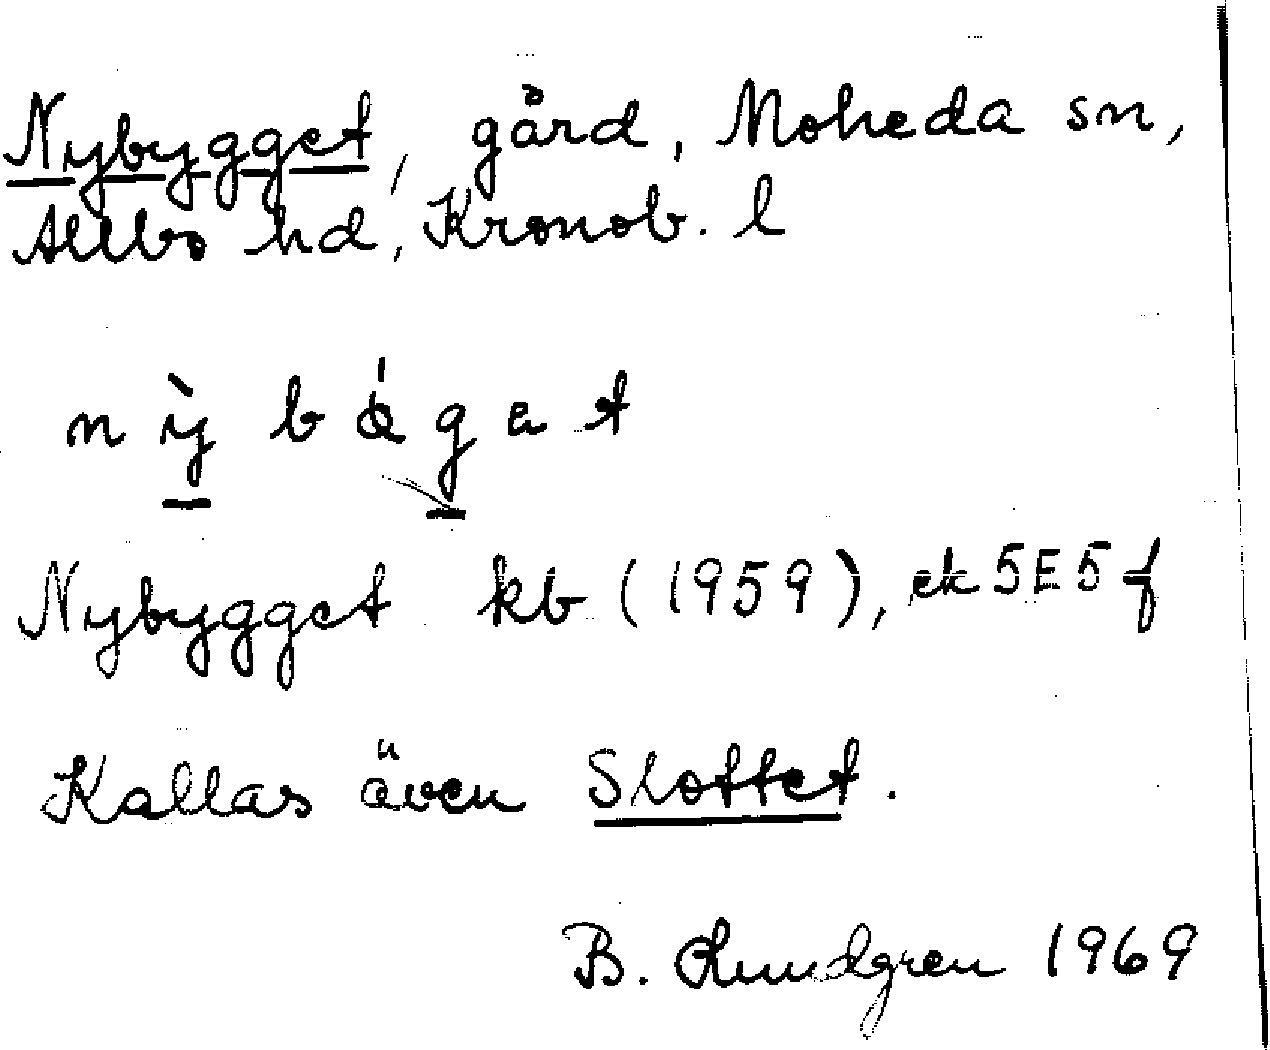 Nybygget, gård, Moheda sn,
Allbo hd, Kronob. l
Nybygget kb (1959), ek 5E5f
Kallas även Slottet.
B. Lundgren 1969